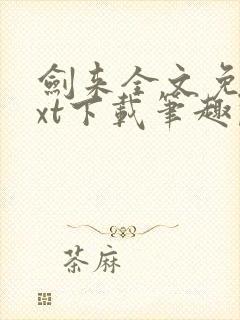 劍来全文免
xt下載筆趣
茶麻